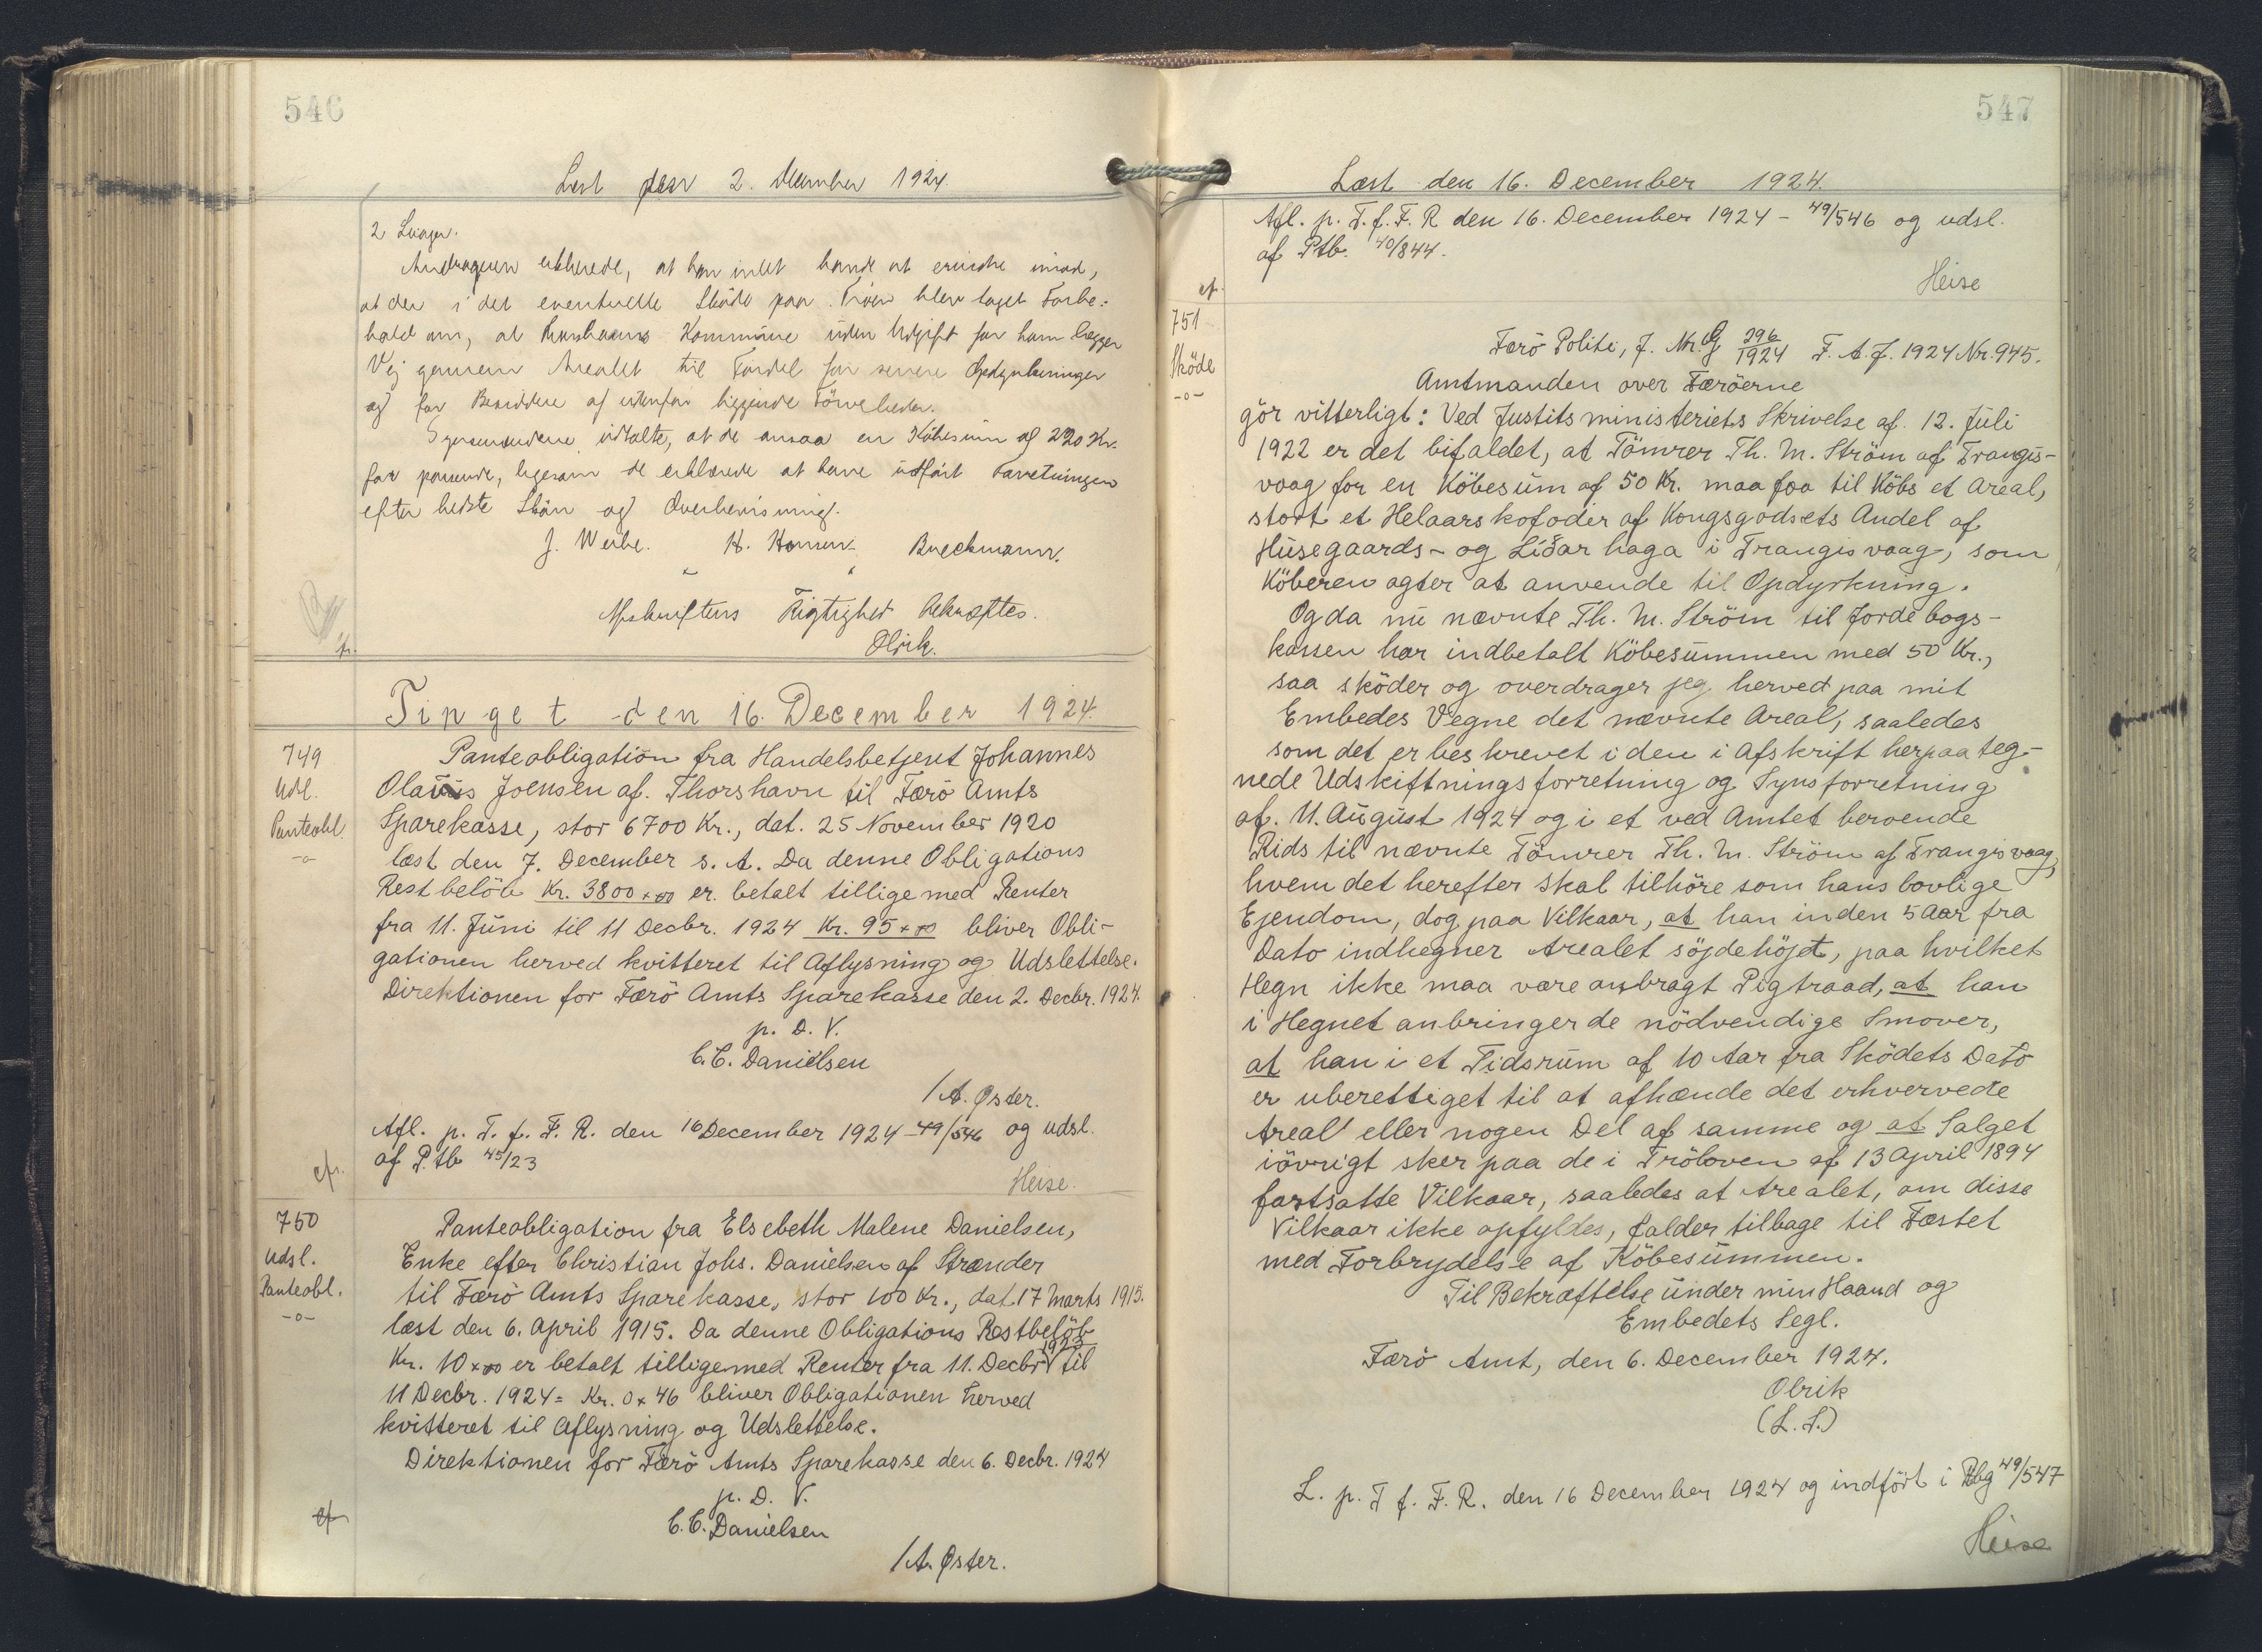 546
Læst den 2. December 1924.
2 Lunger.
Andrageren erklærede, at han intet havde at erindre imod,
at der i det eventuelle Sköde paa Tröen blev taget Forbe-
hold om, at Thorshavns Kommune uden Udgift for ham lægger
Vej gennem Arealet til Fordel for senere Opdyrkninger
og for Besiddere af udenfor liggende Törvelieder.
Synsmændene udtalte, at de ansaa en Köbesum af 220 Kr.
for passende, ligesom de erklærede at have udfört Forretningen
efter bedste Skön og Overbevisning.
J. Weihe. H. Hansen. Brechmann.
Afskriftens Rigtighed bekræftes.
Olrik.
cfr.
Tinget den 16. December 1924.
749
Udsl.
Panteobl.
-o-
Panteobligation fra Handelsbetjent Johannes
Olavus Joensen af Thorshavn til Færö Amts
Sparekasse, stor 6700 Kr., dat. 25 November 1920
læst den 7. December s. A. Da denne Obligations
Restbelöb Kr. 3800 × 00 er betalt tillige med Renter
fra 11. Juni til 11 Decbr. 1924 Kr. 95 × 00 bliver Obli-
gationen herved kvitteret til Aflysning og Udslettelse.
Direktionen for Færö Amts Sparekasse den 2. Decbr. 1924.
p. D. V.
C. C. Danielsen
/A. Øster.
Afl. p. T. f. F. R. den 16 December 1924 - 49/546 og udsl.
af Ptb 45/23
cfr.
Heise.
750
Udsl.
Panteobl.
-o-
Panteobligation fra Elsebeth Malene Danielsen,
Enke efter Christian Johs. Danielsen af Strænder
til Færö Amts Sparekasse, stor 100 Kr., dat. 17 Marts 1915.
læst den 6. April 1915. Da denne Obligations Restbelöb
Kr. 10 × 00 er betalt tilligemed Renter fra 11. Decbr. 1923 til
11 Decbr. 1924 = Kr. 0 × 46 bliver Obligationen herved
kvitteret til Aflysning og Udslettelse.
Direktionen for Færö Amts Sparekasse den 6. Decbr. 1924
p. D. V.
cfr
C. C. Danielsen
/A. Øster.
547
Læst den 16. December 1924.
Afl. p. T. f. F. R den 16. December 1924 - 49/546 og udsl.
af Ptb. 40/844.
Heise
cf.
751
Sköde
-o-
Færö Politi, J. Nr. G 296/1924 F. A. J. 1924 Nr. 945.
Amtmanden over Færöerne
gör vitterligt: Ved Justitsministeriets Skrivelse af 12. Juli
1922 er det bifaldet, at Tömrer Th. M. Ström af Trangis-
vaag for en Köbesum af 50 Kr. maa faa til Köbs et Areal,
stort et Helaarskofoder af Kongsgodsets Andel af
Husegaards- og Líðar haga i Trangisvaag, som
Köberen agter at anvende til Opdyrkning.
Og da nu nævnte Th. M. Ström til Jordebogs-
kassen har indbetalt Köbesummen med 50 Kr.,
saa sköder og overdrager jeg herved paa mit
Embedes Vegne det nævnte Areal, saaledes
som det er beskrevet i den i Afskrift herpaa teg-
nede Udskiftningsforretning og Synsforretning
af 11. August 1924 og i et ved Amtet beroende
Rids til nævnte Tömrer Th. M. Ström af Trangisvaag,
hvem det herefter skal tilhöre som hans lovlige
Ejendom, dog paa Vilkaar, at han inden 5 Aar fra
Dato indhegner Arealet söjdehöjt, paa hvilket
Hegn ikke maa være anbragt Pigtraad, at han
i Hegnet anbringer de nödvendige Smover,
at han i et Tidsrum af 10 Aar fra Sködets Dato
er uberettiget til at afhænde det erhvervede
Areal eller nogen Del af samme og at Salget
iövrigt sker paa de i Tröloven af 13 April 1894
fastsatte Vilkaar, saaledes at Arealet, om disse
Vilkaar ikke opfyldes, falder tilbage til Fæstet
med Forbrydelse af Köbesummen.
Til Bekræftelse under min Haand og
Embedets Segl.
Færö Amt, den 6. December 1924.
Olrik
(L. S.)
L. p. T f. F. R. den 16 December 1924 og indfört i Pbg 49/547
Heise